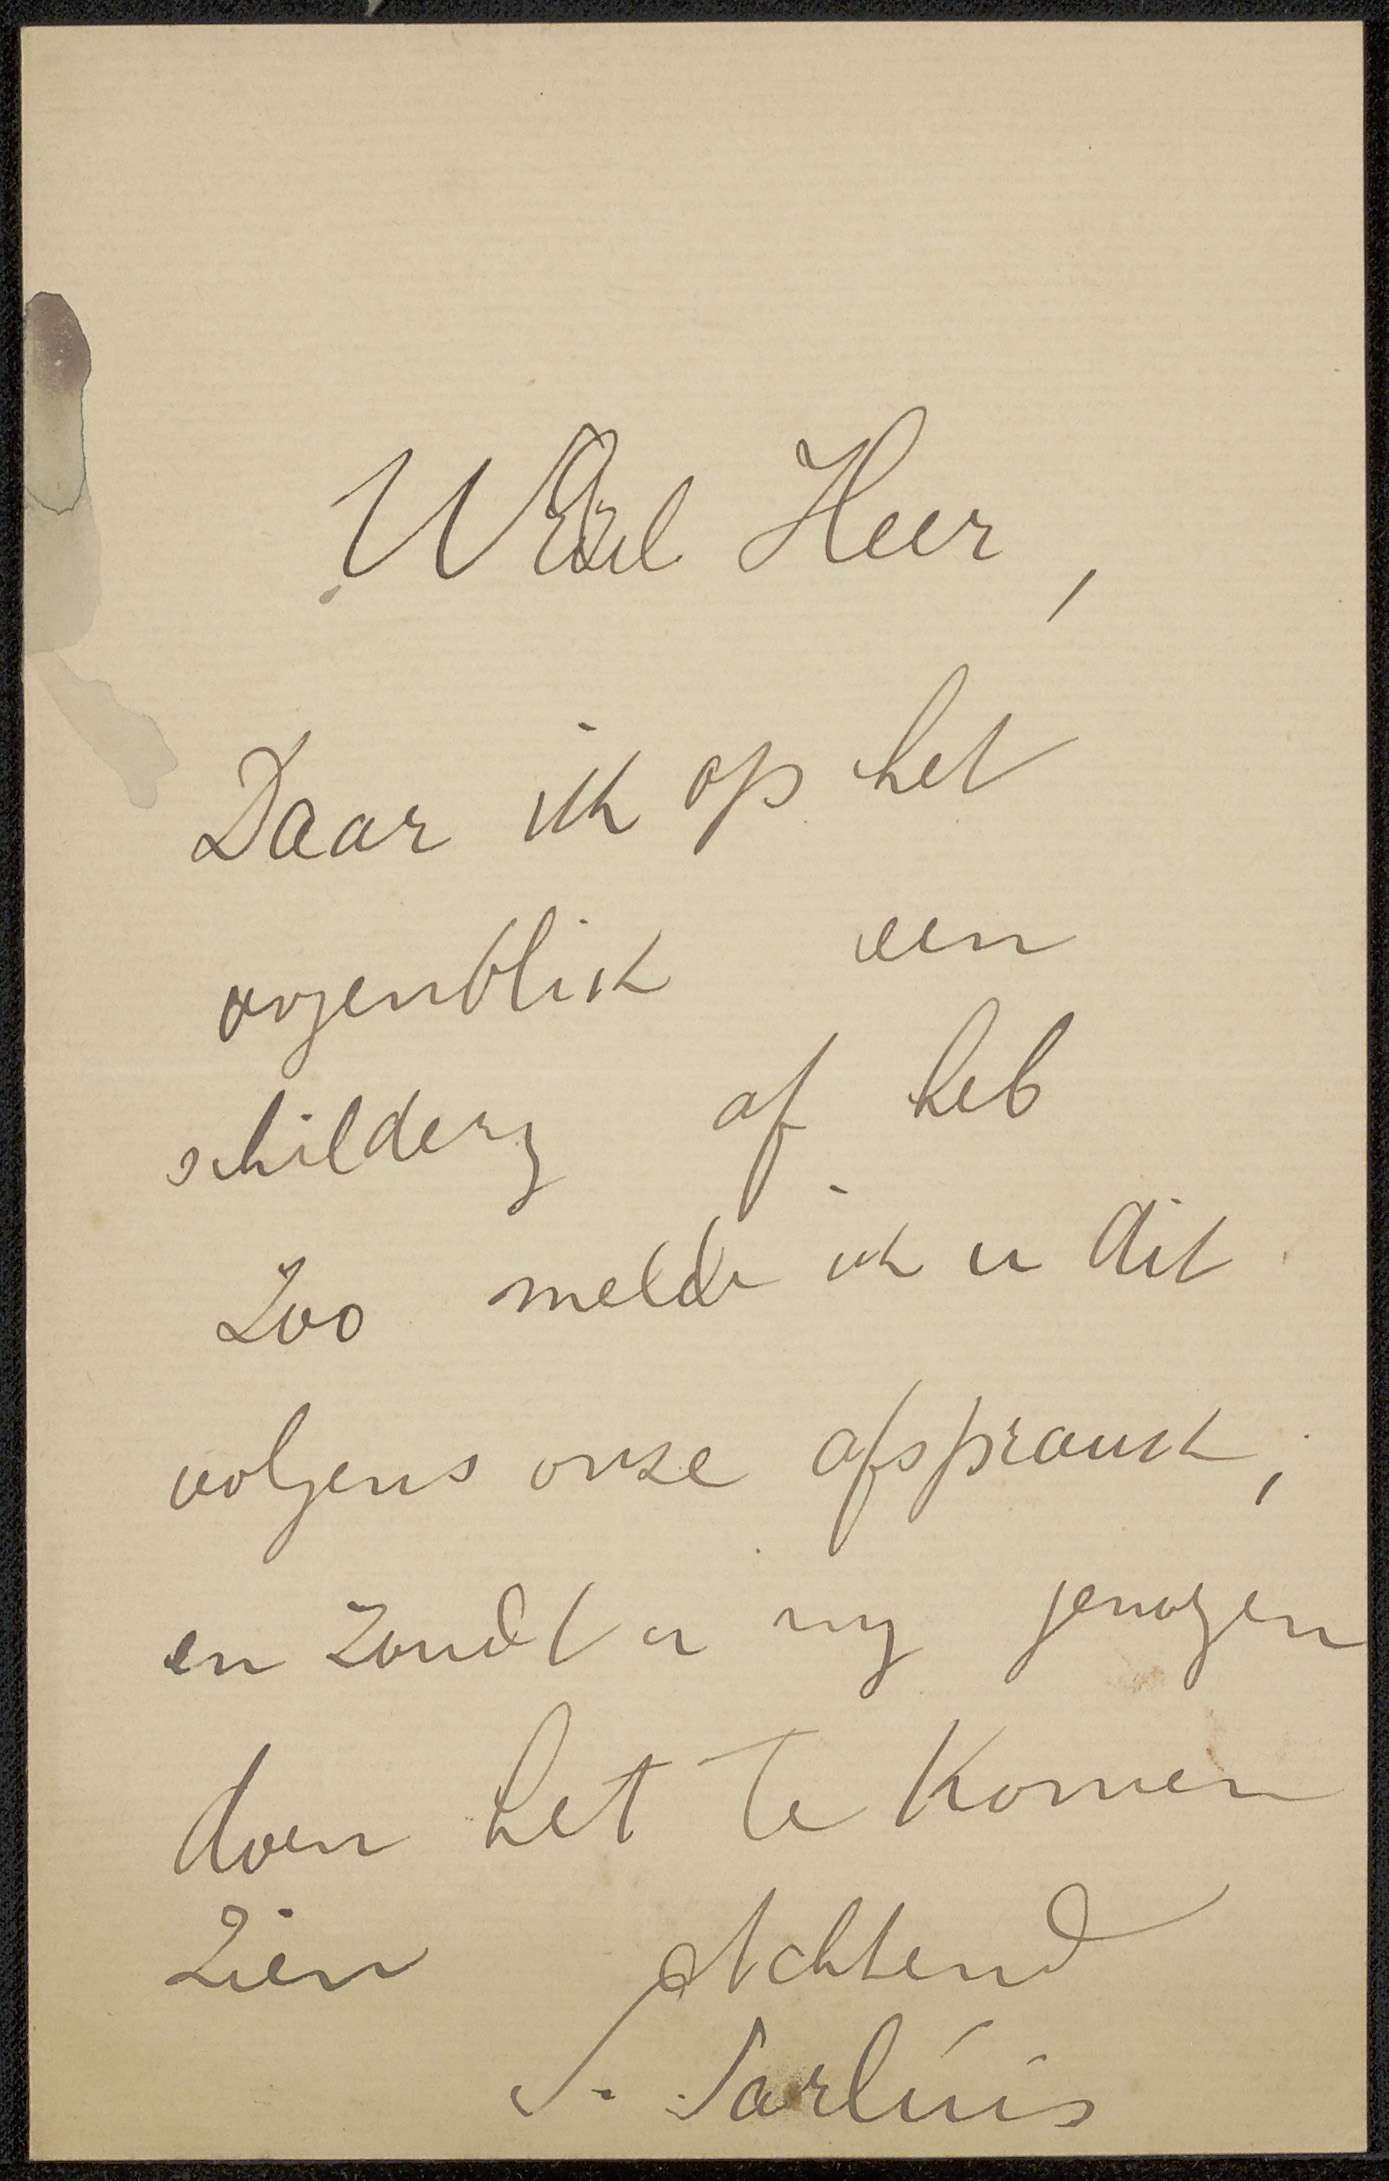 WEdel Heer,
Daar ik op het
oogenblik een
schildery af heb
Zoo melde ik u dit
volgens onze afspraack,
en Zoudt u my genoegen
doen het te komen
zien Achtend
S. Sarluis